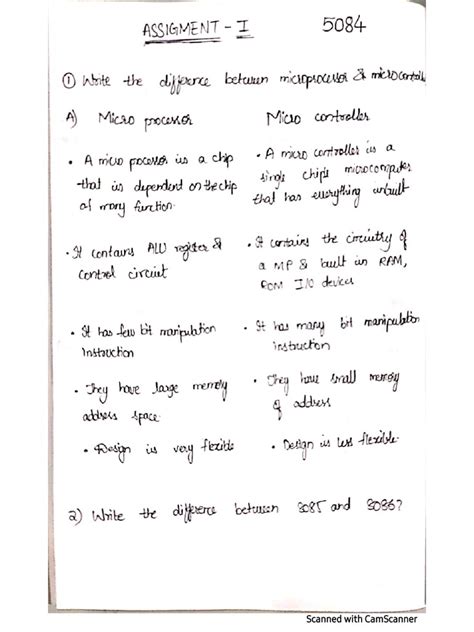 ASSIGMENT - I 5084
① Write the difference between microprocessor & microcontroll
A) Micro processor Micro controller
• A micro processor is a chip
that is dependent on the chip
of many function.
• A micro controller is a
single chip microcomputer
that has everything inbuilt
• It contains ALU register &
control circuit
• It contains the circuitry of
a MP & built in RAM,
ROM I/O devices
• It has few bit manipulation
instruction
• It has many bit manipulation
instruction
• They have large memory
address space.
• They have small memory
of address
• Design is very flexible
• Design is less flexible.
2) Write the difference between 8085 and 8086?
Scanned with CamScanner